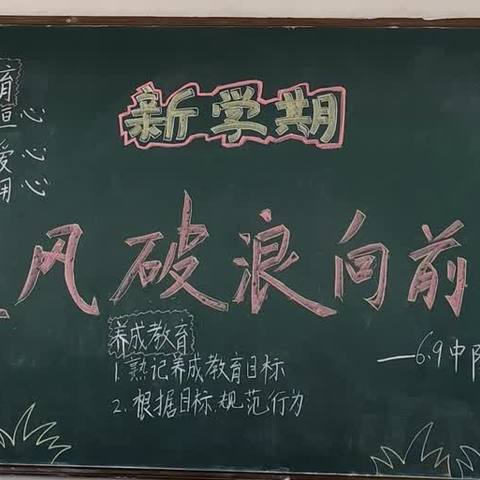 育
恒心
爱心
用心
新学期
风破浪向前
养成教育
1.熟记养成教育目标
2.根据目标,规范行为
—6.9中队